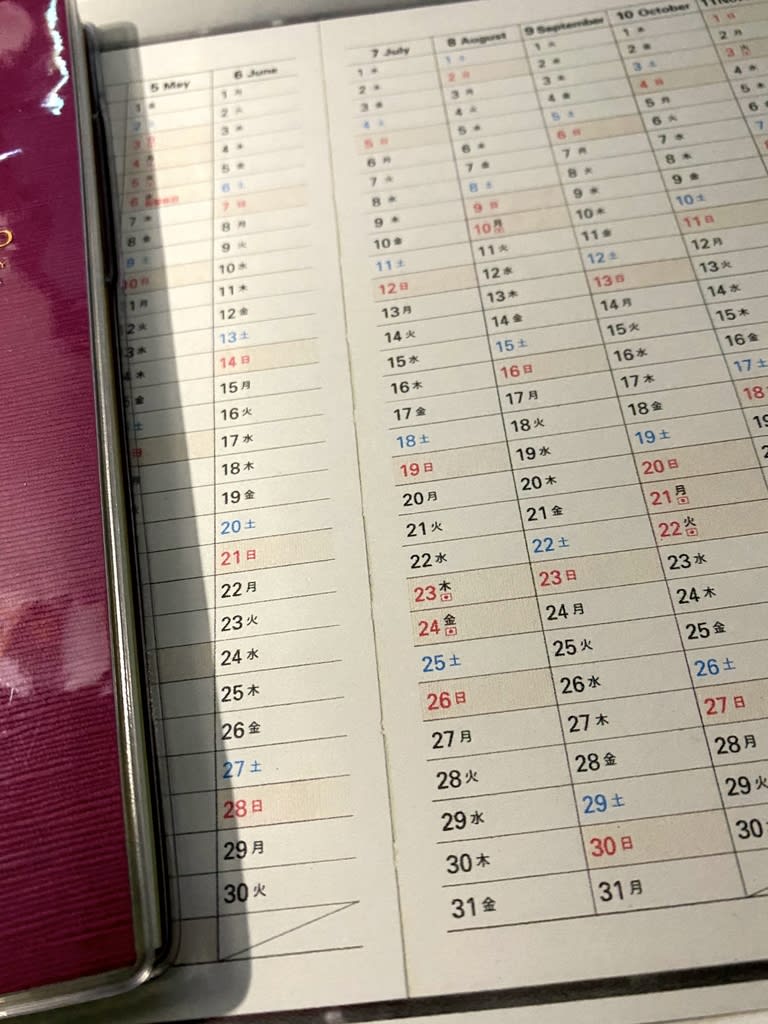 5 May
1 金
2 土
3 日
4 月
5 火
6
7 木
8 金
9 土
10 日
月
火
水
木
金
土
日
6 June
1 月
2 火
3 水
4 木
5 金
6 土
7 日
8 月
9 火
10 水
11 木
12 金
13 土
14 日
15 月
16 火
17 水
18 木
19 金
20 土
21 日
22 月
23 火
24 水
25 木
26 金
27 土
28 日
29 月
30 火
7 July
1 水
2 木
3 金
4 土
5 日
6 月
7 火
8 水
9 木
10 金
11 土
12 日
13 月
14 火
15 水
16 木
17 金
18 土
19 日
20 月
21 火
22 水
23 木
24 金
25 土
26 日
27 月
28 火
29 水
30 木
31 金
8 August
1 土
2 日
3 月
4 火
5 水
6 木
7 金
8 土
9 日
10 月
11 火
12 水
13 木
14 金
15 土
16 日
17 月
18 火
19 水
20 木
21 金
22 土
23 日
24 月
25 火
26 水
27 木
28 金
29 土
30 日
31 月
9 September
1 火
2 水
3 木
4 金
5 土
6 日
7 月
8 火
9 水
10 木
11 金
12 土
13 日
14 月
15 火
16 水
17 木
18 金
19 土
20 日
21 月
22 火
23 水
24 木
25 金
26 土
27 日
28 月
29 火
30
10 October
1 木
2 金
3 土
4 日
5 月
6 火
7 水
8 木
9 金
10 土
11 日
12 月
13 火
14 水
15 木
16 金
17 土
18
19
11
1 日
2 月
3 火
4 水
5 木
6
7